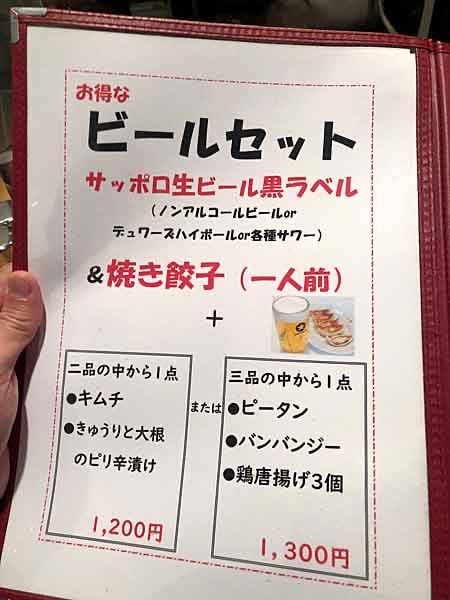 お得な
ビールセット
サッポロ生ビール黒ラベル
(ノンアルコールビールor
デュワーズハイボールor各種サワー)
&焼き餃子(一人前)
+
二品の中から1点
●キムチ
●きゅうりと大根
のピリ辛漬け
1,200円
または
三品の中から1点
●ピータン
●バンバンジー
●鶏唐揚げ3個
1,300円